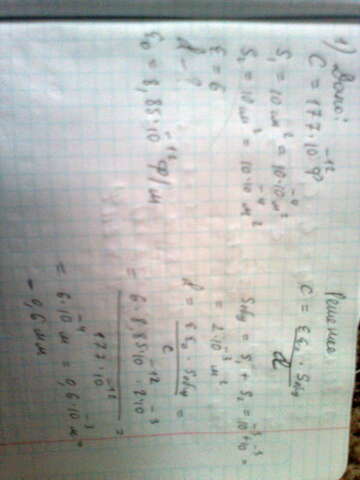 1) Дано:
C = 177·10⁻¹² Ф
S₁ = 10 см² = 10·10⁻⁴ м²
S₂ = 10 см² = 10·10⁻⁴ м²
ε = 6
d - ?
ε₀ = 8,85·10⁻¹² Ф/м
Решение
C = εε₀·Sобщ / d
Sобщ = S₁ + S₂ = 10⁻³ + 10⁻³ =
= 2·10⁻³ м²
d = εε₀·Sобщ / C =
= 6·8,85·10⁻¹²·2·10⁻³ / 177·10⁻¹² =
= 6·10⁻⁴ м = 0,6·10⁻³ м =
= 0,6 мм